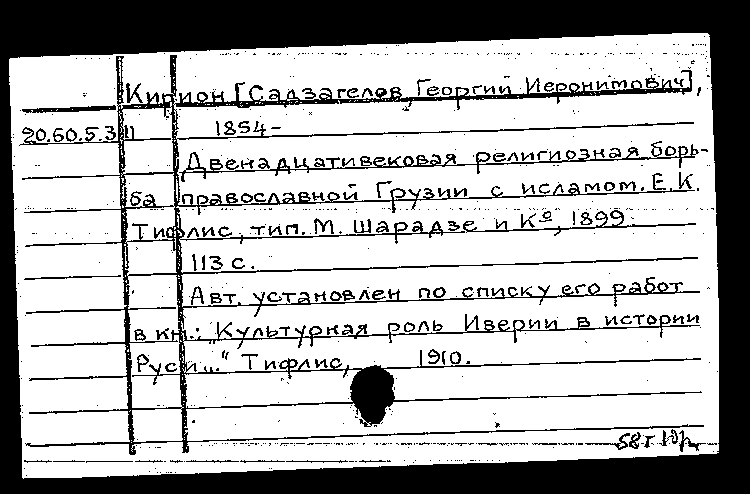 Кирион [Садзагелов, Георгий Иеронимович],
20.60.5.311 1854-
Двенадцативековая религиозная борь-
ба православной Грузии с исламом. Е. К.
Тифлис, тип. М. Шарадзе и К°, 1899.
113 с.
Авт. установлен по списку его работ
в кн.: "Культурная роль Иверии в истории
Руси..." Тифлис, 1910.
58г